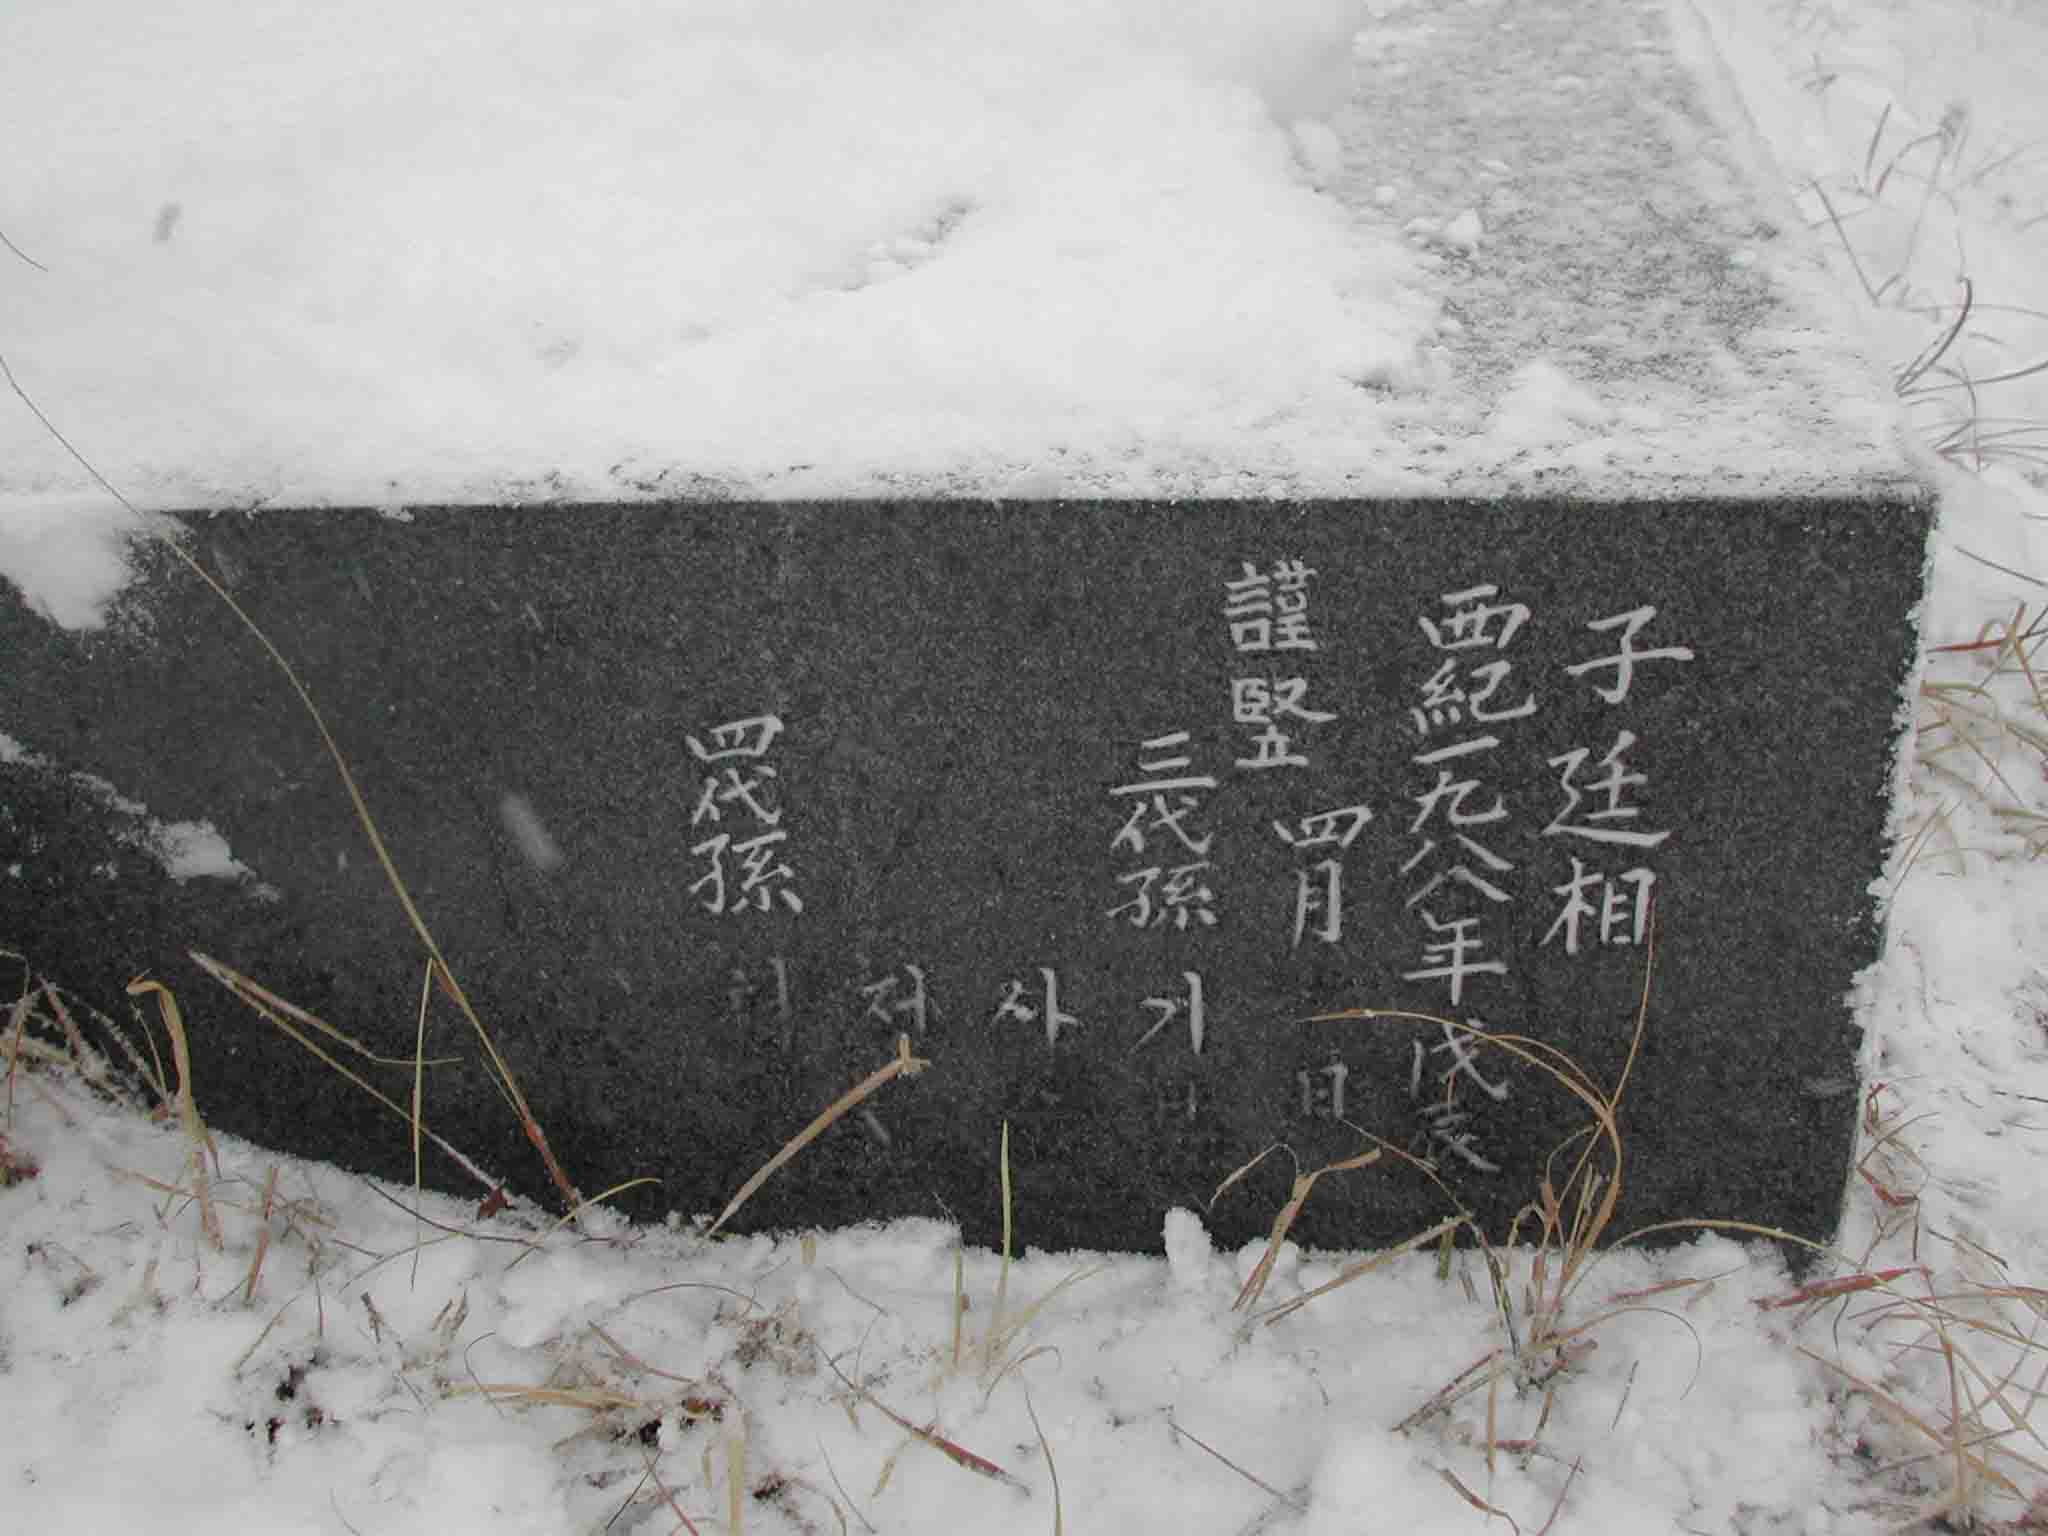 子 廷 相
西紀一九八八年戊辰
四月 日
謹竪
三代孫 기
사
저
四代孫